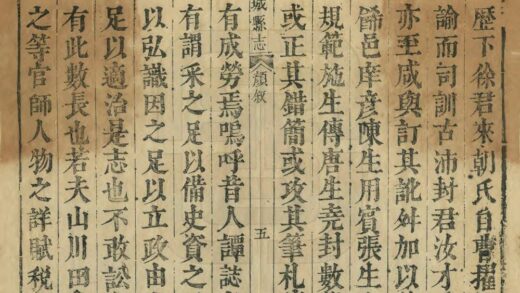 歷下徐君來朝氏自曹擢
諭而司訓古沛封君汝才
亦至咸與訂其訛舛加以
邑庠彥陳生用賓張生
規範施生傳唐生堯封數
或正其錯簡或攻其筆札
城縣志 顔敘 五
有成勞焉嗚呼昔人譚誌
有謂采之足以備史資之
以弘識因之足以立政由
足以適治是志也不敢訟
有此數長也若夫山川田
之等官師人物之詳賦稅